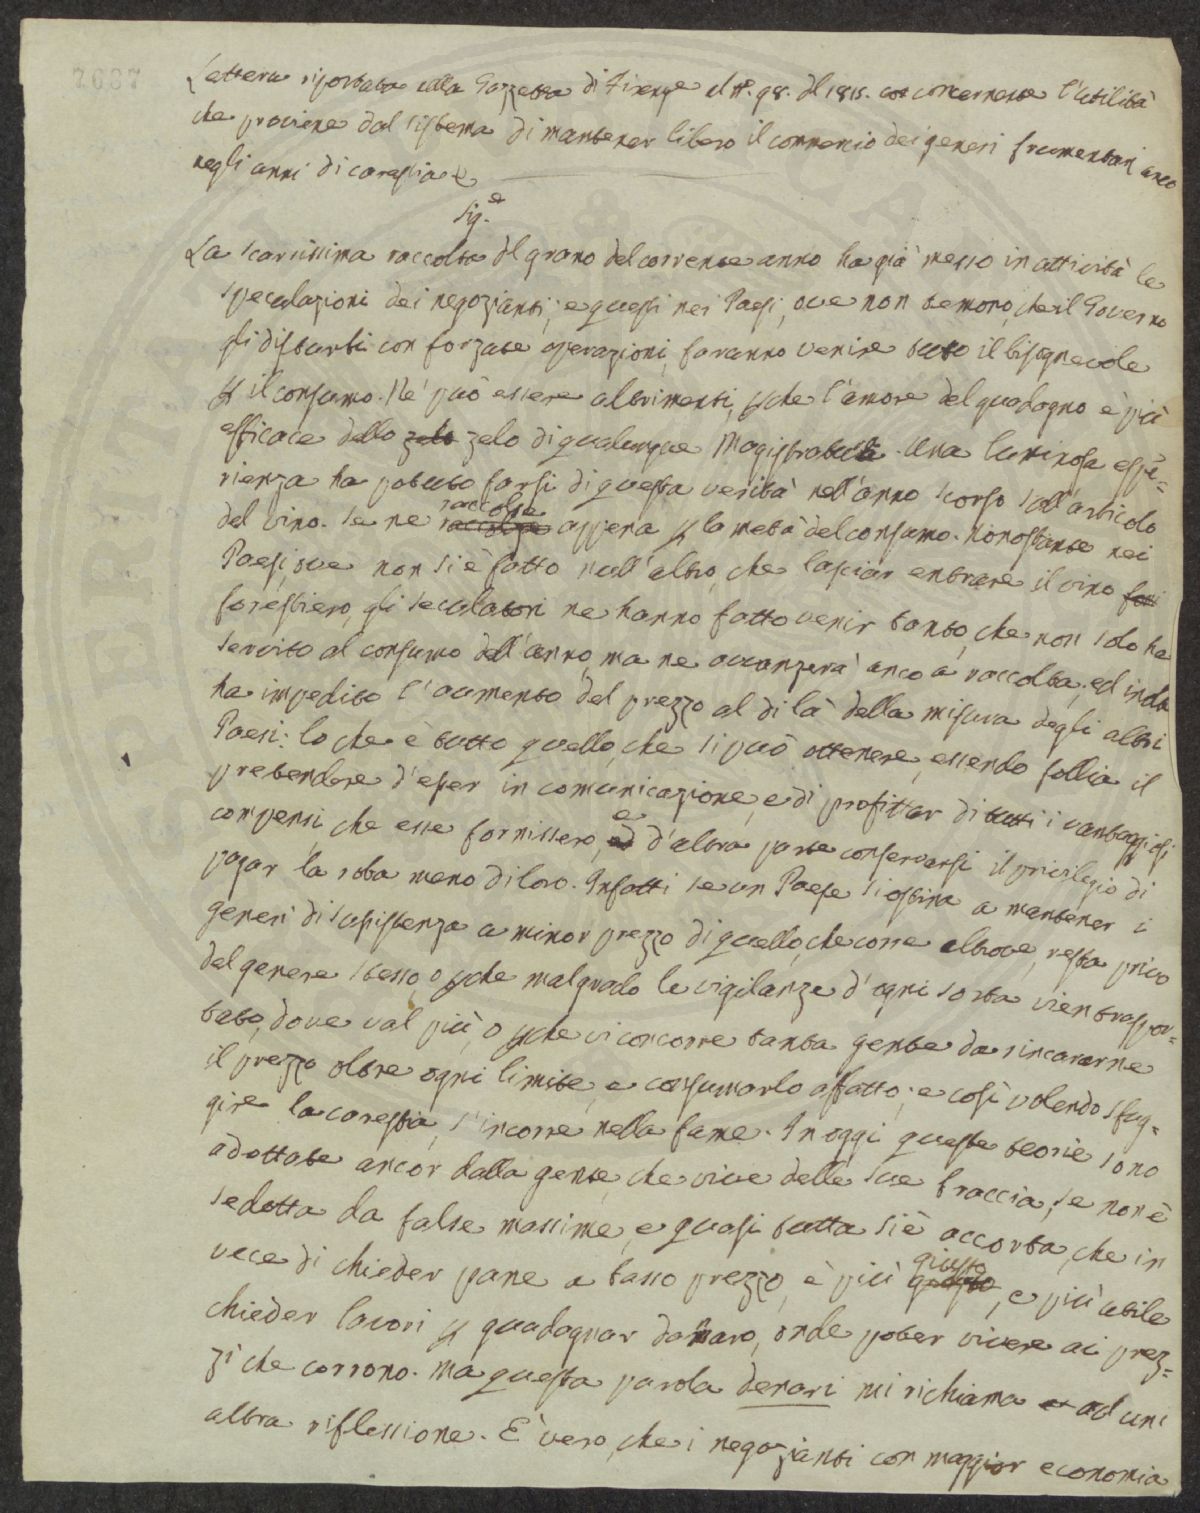 7687
Lettera riportata nella Gazzetta di Firenze al N.° 98. del 1815. con concernente l'utilità
che proviene dal sistema di mantener libero il commercio dei generi frumentari anco
negli anni di carestia
Sig.e
La scarsissima raccolta del grano del corrente anno ha già messo in attività le
speculazioni dei negozianti; e questi nei Paesi, ove non temono, che il Governo
gli disturbi con forzate operazioni, faranno venire tutto il bisognevole
p il consumo. Nè può essere altrimenti, pche l'amore del guadagno è più
efficace dello zelo zelo di qualunque Magistratura. Una luminosa espe=
rienza ha potuto farsi di questa verità nell'anno scorso sull'articolo
del vino. Se ne raccolse raccolse appena p la metà del consumo. Nonostante nei
Paesi, ove non si è fatto null'altro, che lasciar entrare il vino fori
forestiero, gli speculatori ne hanno fatto venir tanto, che non solo ha
servito al consumo dell'anno, ma ne avanzerà anco a raccolta; ed inoltre
ha impedito l'aumento del prezzo al di là della misura degli altri
Paesi: lo che è tutto quello, che si può ottenere, essendo follia il
pretendere d'esser in comunicazione, e di profittar di tutti i vantaggiosi
compensi, che esse fornissero, ed e d'altra parte conservarsi il privilegio di
pagar la roba meno di loro. Infatti se un Paese si ostina a mantener i
generi di sussistenza a minor prezzo di quello, che corre altrove, resta privo
del genere stesso, o pche malgrado le vigilanze d'ogni sorta vien traspor=
tato, dove val più, o pche vi concorre tanta gente da rincararne
il prezzo oltre ogni limite, e consumarlo affatto; e così volendo sfug=
gire la carestia, s'incorre nella fame. In oggi queste teorie sono
adottate ancor dalla gente, che vive delle sue braccia, se non è
sedotta da false massime, e quasi tutta si è accorta, che in
vece di chieder pane a basso prezzo, è più giusto giusto, e più utile
chieder lavori p guadagnar danaro, onde poter vivere ai prez=
zi che corrono. Ma questa parola denari mi richiama ad un'
altra riflessione. È vero, che i negozianti con maggior economia